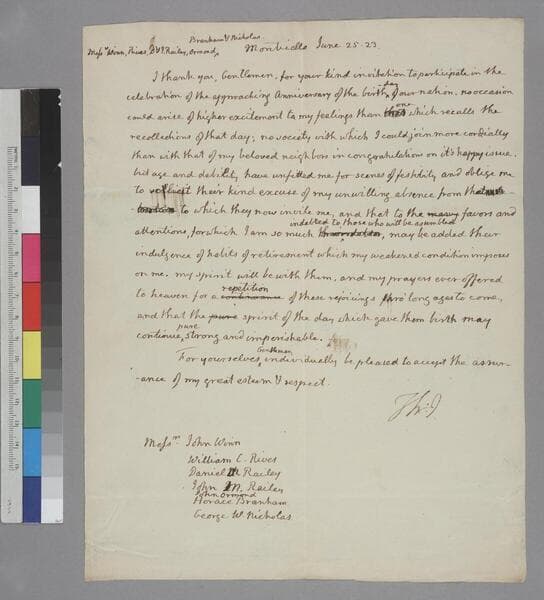 Branham & Nicholas.
Messrs Winn, Rives, D & J. Railey, Ormond, Monticello June 25. 23.
I thank you, Gentlemen, for your kind invitation to participate in the
celebration of the approaching Anniversary of the birth day of our nation. no occasion
could arise of higher excitement to my feelings than that one which recalls the
recollections of that day; no society with which I could join more cordially
than with that of my beloved neighbors in congratulation on it's happy issue.
but age and debility have unfitted me for scenes of festivity and oblige me
to solicit their kind excuse of my unwilling absence from that
to which they now invite me, and that to the many favors and
indebted to those who will be assembled
attentions, for which I am so much may be added their
indulgence of habits of retirement which my weakened condition imposes
on me. my spirit will be with them, and my prayers ever offered
repetition
to heaven for a continuance of these rejoicings thro long ages to come,
and that the pure spirit of the day which gave them birth may
pure
continue, strong and imperishable.
Gentlemen
For yourselves, individually be pleased to accept the assur-
-ance of my great esteem & respect.
Th: J
Messrs John Winn
William C. Rives
Daniel M Railey
John M. Railey
John Ormond
Horace Branham
George W. Nicholas